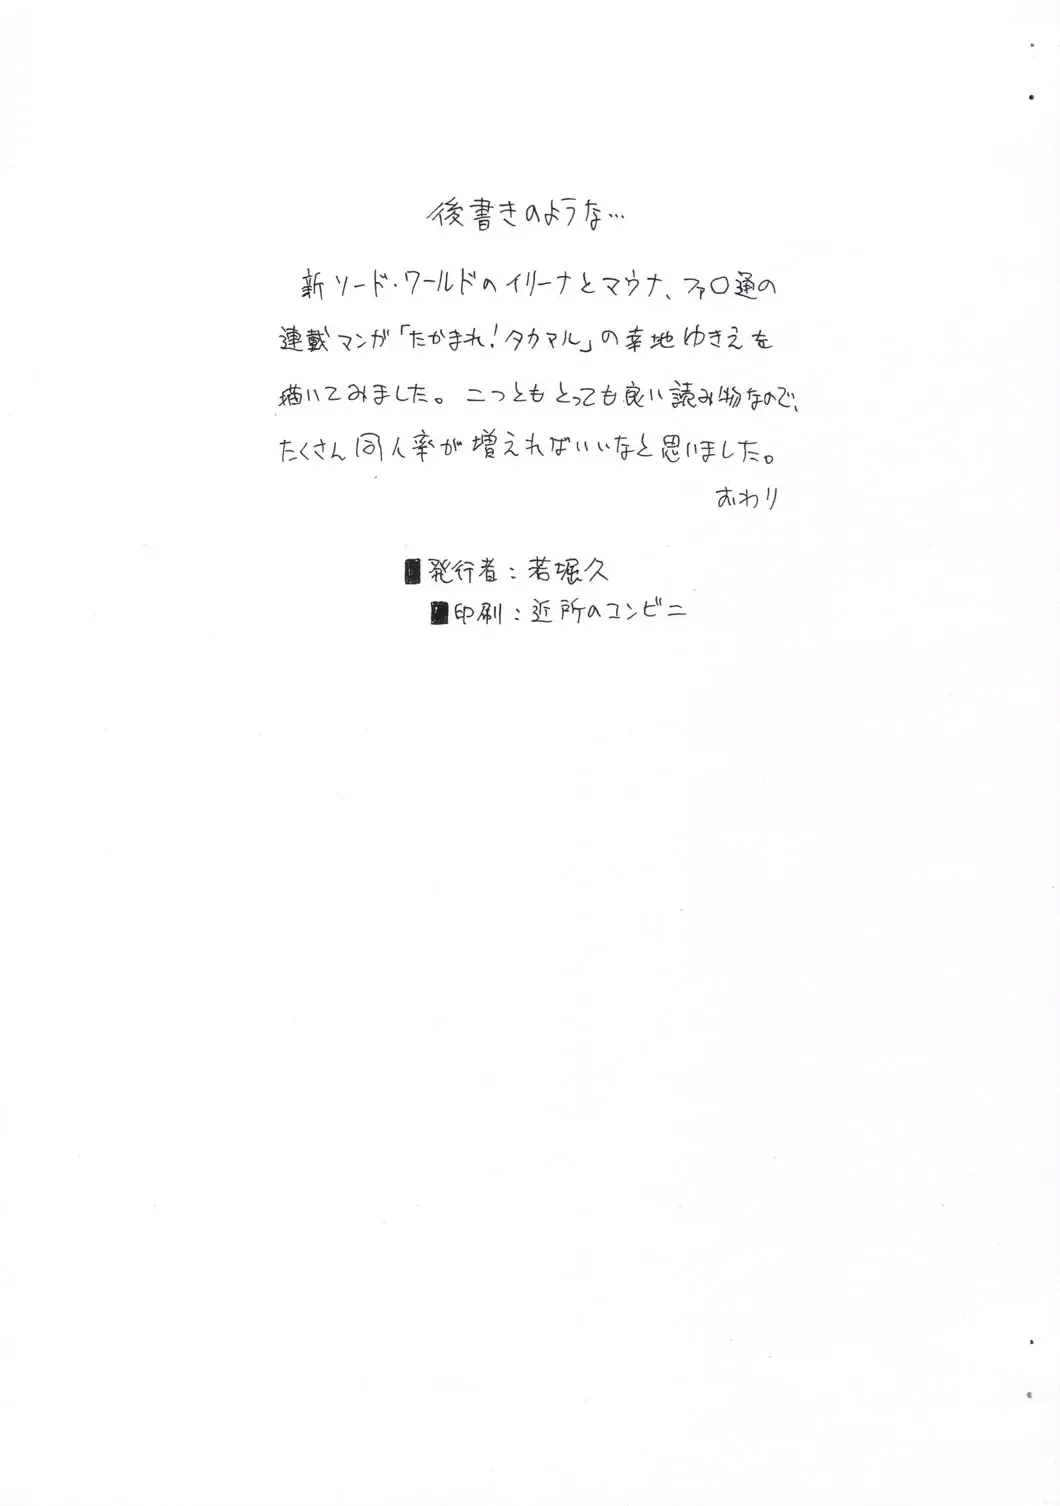 後書きのような…
新ソード・ワールドのイリーナとマウナ、ファ〇通の
連載マンガ「たかまれ!タカマル」の幸地ゆきえを
描いてみました。二つともとっても良い読み物なので、
たくさん同人率が増えればいいなと思いました。
おわり
■発行者:若堀久
■印刷:近所のコンビニ